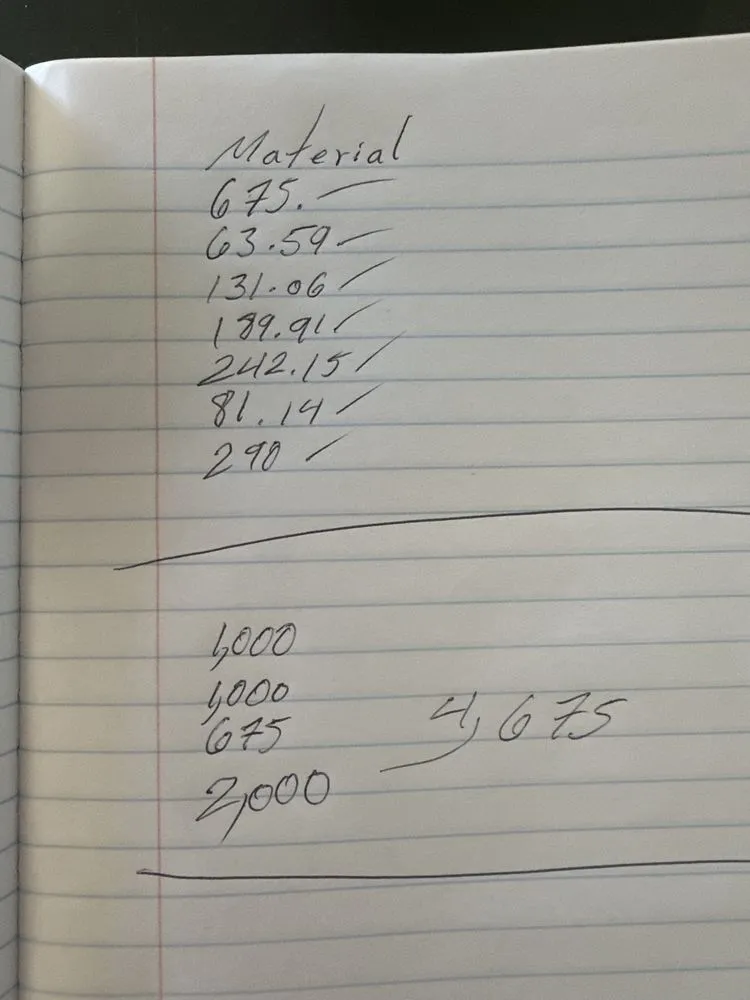 Material
675.—
63.59
131.06
189.91
242.15
81.14
290
1,000
1,000
675
2,000
4,675